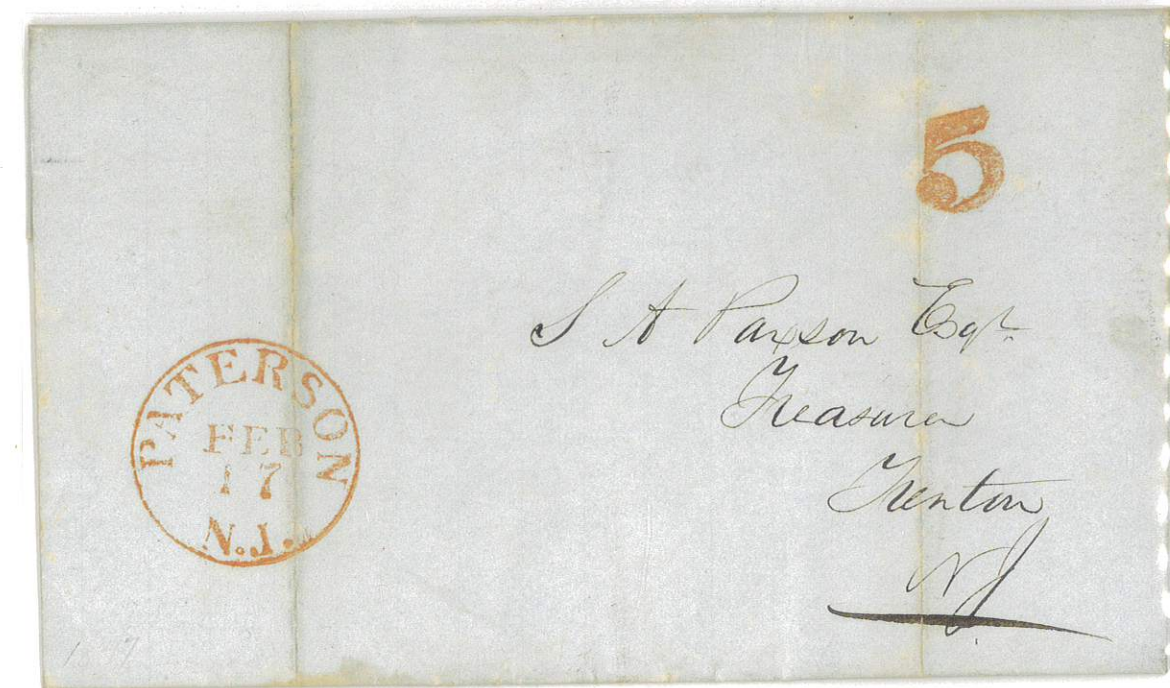 5
S A Paxson Esqr
Treasurer
Trenton
NJ
PATERSON
FEB
17
N.J.